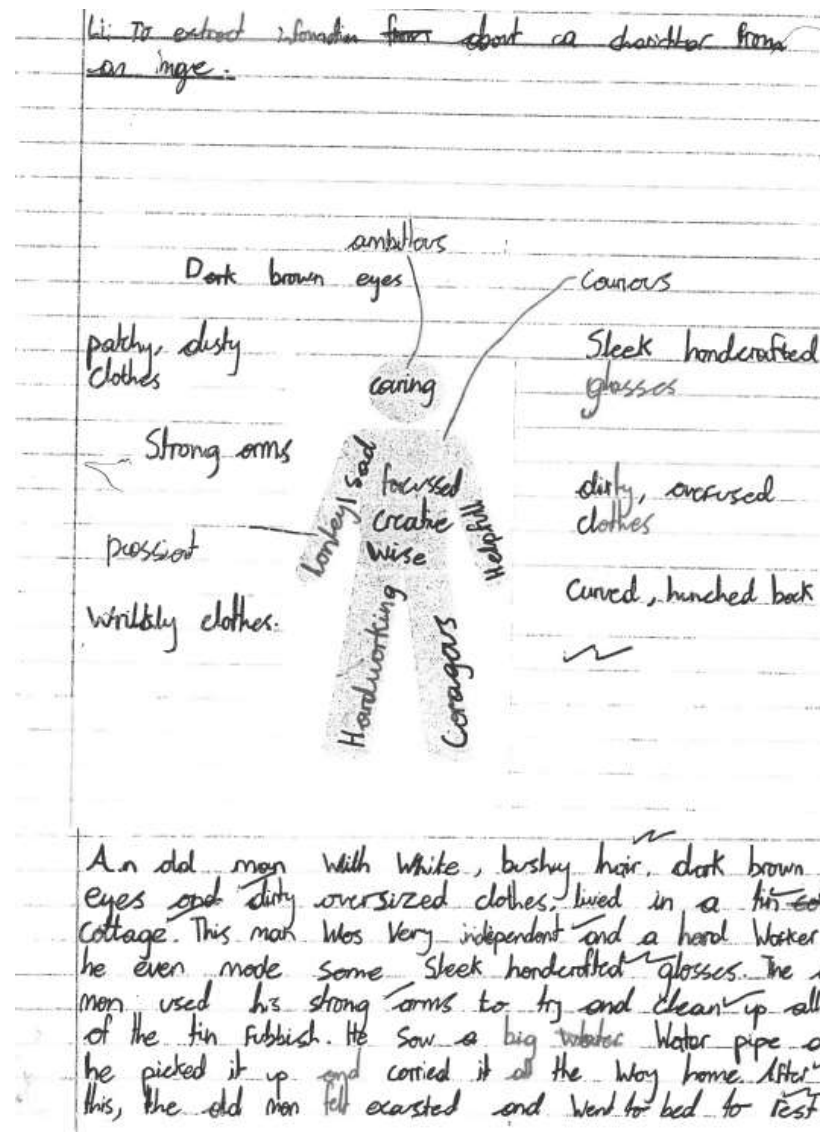 Li: To extract infomation from about a charickter from
an imge.
ambitous
Dark brown eyes
couriours
patchy, dusty
clothes
Sleek handcrafted
glasses
caring
Strong arms
Lonley/sad
focussed
creative
wise
Helpfull
dirty, overused
clothes
passient
Curved, hunched back
Wrinkly clothes.
Hardworking
Coragous
An old man with white, bushy hair, dark brown
eyes and dirty oversized clothes, lived in a tin
cottage. This man was very independent and a hard worker
he even made some sleek handcrafted glasses. The
man used his strong arms to try and clean up all
of the tin rubbish. He saw a big water pipe
he picked it up and carried it all the way home. After
this, the old man felt exausted and went to bed to rest